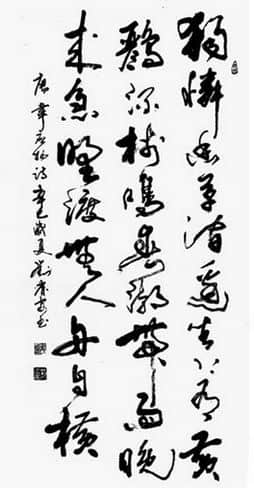 獨憐幽草澗邊生上有黃
鸝深樹鳴春潮帶雨晚
來急野渡無人舟自橫
唐韋應物詩辛巳歲夏劉書